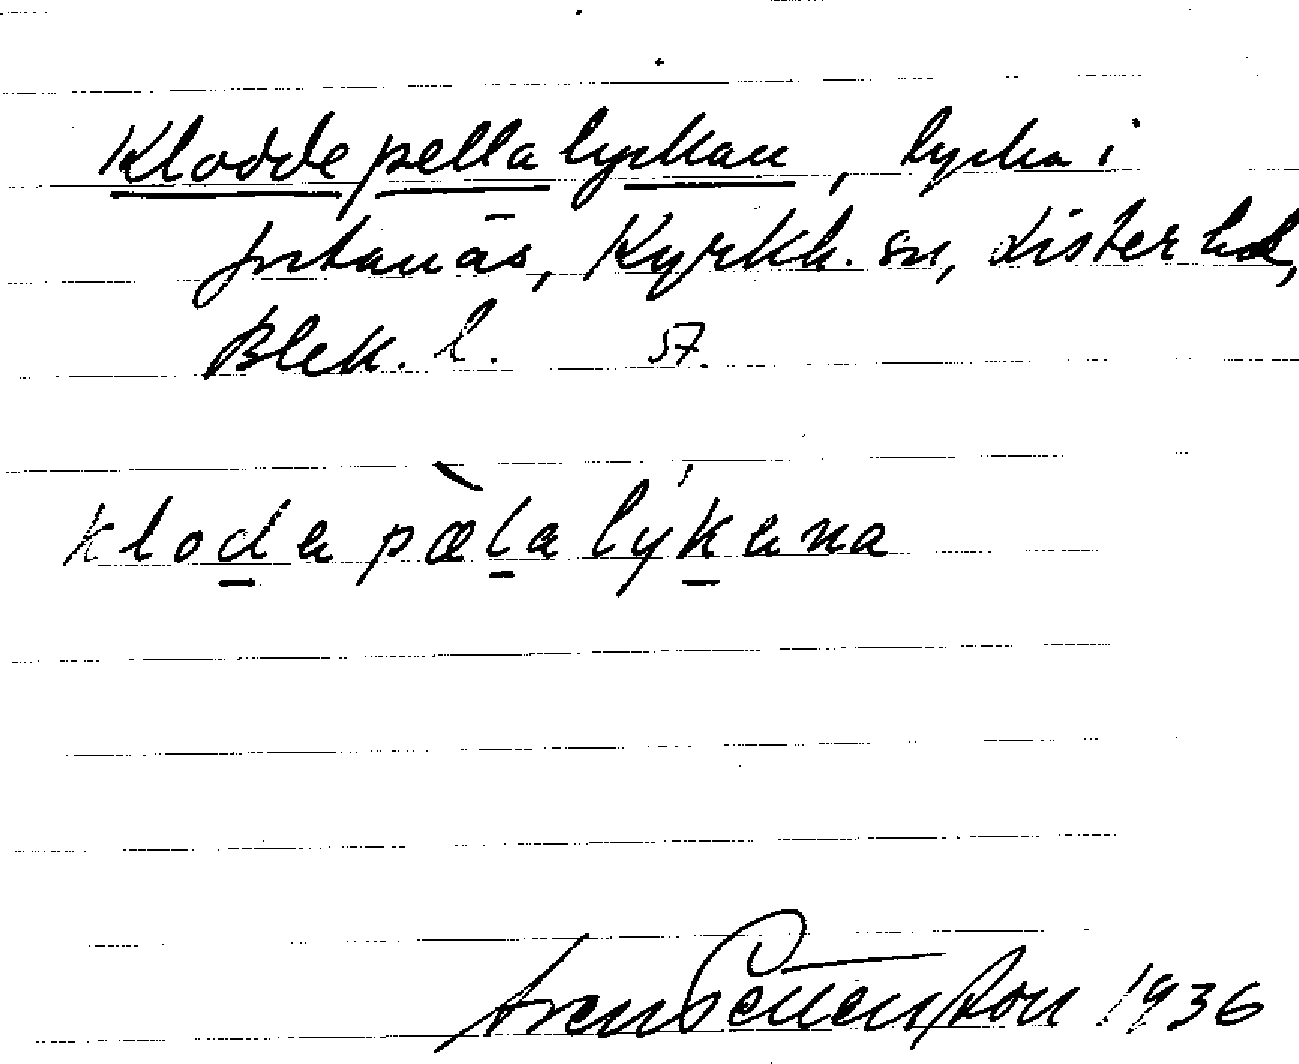 Kloddepellalyckan, lycka i
Kyrkh. sn, Lister hd,
Blek. l. 57.
klodapælalykana
1936